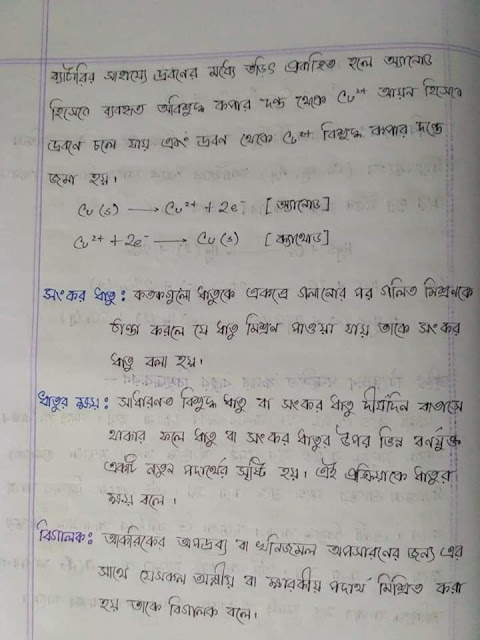 ব্যাটারির সাহায্যে দ্রবণের মধ্যে তড়িৎ প্রবাহিত হলে অ্যানোড
হিসেবে ব্যবহৃত অবিশুদ্ধ কপার দন্ড থেকে Cu²⁺ আয়ন হিসেবে
দ্রবনে চলে যায় এবং দ্রবন থেকে Cu²⁺ বিশুদ্ধ কপার দন্ডে
জমা হয়।
Cu(s) → Cu²⁺ + 2e⁻ [অ্যানোড]
Cu²⁺ + 2e⁻ → Cu(s) [ক্যাথোড]
সংকর ধাতু: কতকগুলো ধাতুকে একত্রে গলানোর পর গলিত মিশ্রনকে
ঠান্ডা করলে যে ধাতু মিশ্রন পাওয়া যায় তাকে সংকর
ধাতু বলা হয়।
ধাতুর ক্ষয়: সাধারনত বিশুদ্ধ ধাতু বা সংকর ধাতু দীর্ঘদিন বাতাসে
থাকার ফলে ধাতু বা সংকর ধাতুর উপর ভিন্ন বর্নযুক্ত
একটি নতুন পদার্থের সৃষ্টি হয়। এই প্রক্রিয়াকে ধাতুর
ক্ষয় বলে।
বিগালক: আকরিকের অপদ্রব্য বা খনিজমল অপসারনের জন্য এর
সাথে যেসকল অম্লীয় বা ক্ষারকীয় পদার্থ মিশ্রিত করা
হয় তাকে বিগালক বলে।